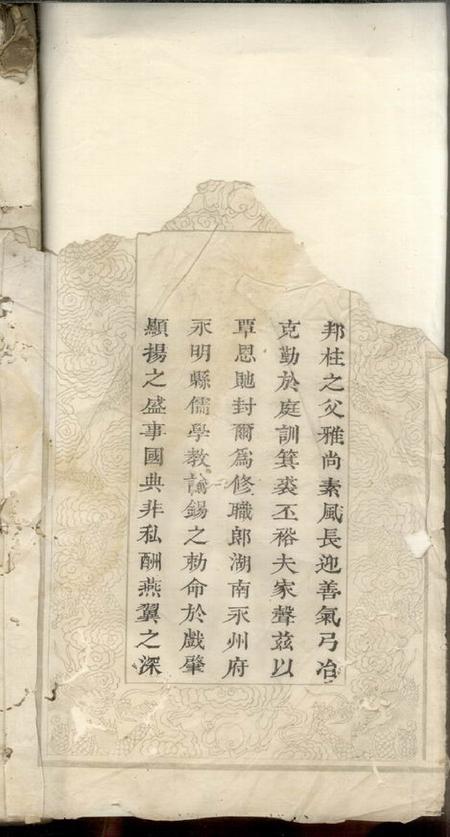 邦柱之父雅尚素風長迎善氣弓冶
克勤於庭訓箕裘丕裕夫家聲茲以
覃恩貤封爾爲修職郎湖南永州府
永明縣儒學教諭錫之勅命於戲肇
顯揚之盛事國典非私酬燕翼之深